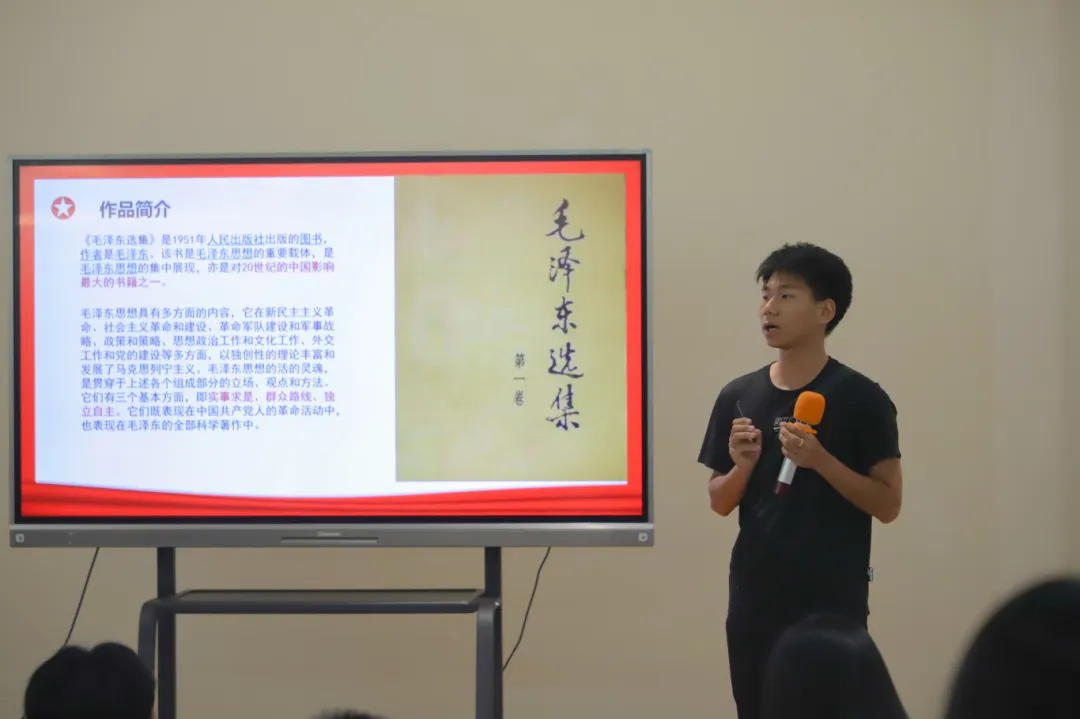 作品简介
《毛泽东选集》是1951年人民出版社出版的图书，
作者是毛泽东。该书是毛泽东思想的重要载体，是
毛泽东思想的集中展现，亦是对20世纪的中国影响
最大的书籍之一。
毛泽东思想具有多方面的内容，它在新民主主义革
命、社会主义革命和建设、革命军队建设和军事战
略、政策和策略、思想政治工作和文化工作、外交
工作和党的建设等多方面，以独创性的理论丰富和
发展了马克思列宁主义。毛泽东思想的活的灵魂，
是贯穿于上述各个组成部分的立场、观点和方法。
它们有三个基本方面，即实事求是、群众路线、独
立自主。它们既表现在中国共产党人的革命活动中，
也表现在毛泽东的全部科学著作中。
毛泽东选集
第一卷